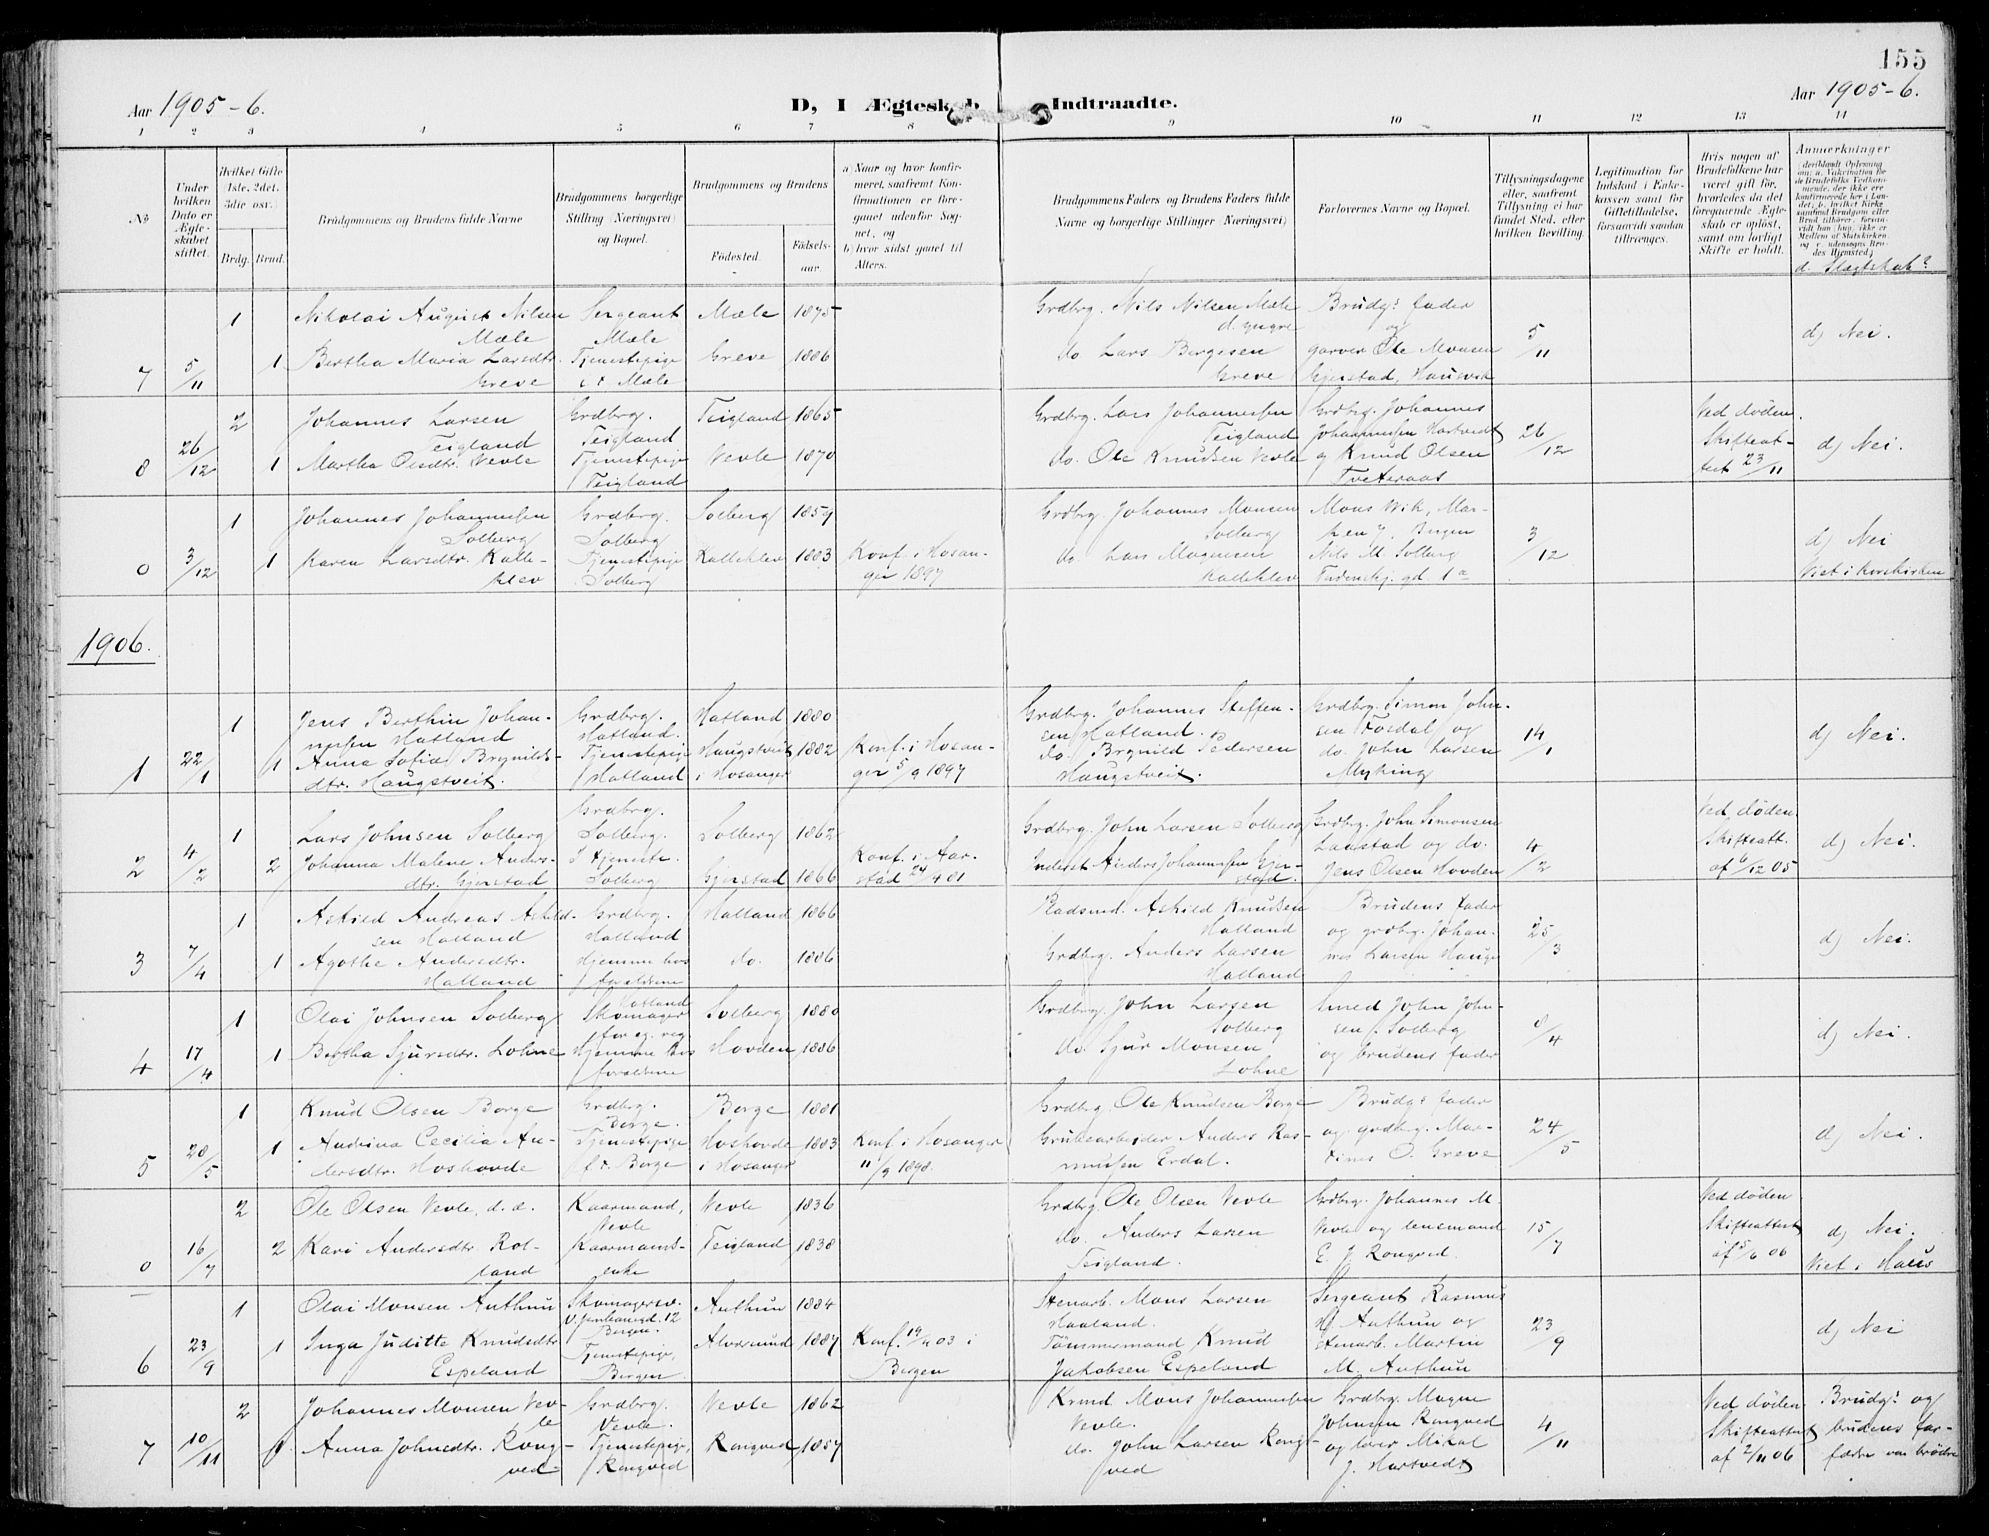 155
Aar 1905-6.
D, I Ægtesk b Indtraadte.
Aar 1905-6.
1 2 3 4 5 6 7 8 9 10 11 12 13 14
No
Under hvilken Dato er Ægteskabet stiftet.
Hvilket Gifte 1ste, 2det, 3die osv.)
Brdg. Brud.
Brudgommens og Brudens fulde Navne
Brudgommens borgerlige Stilling (Næringsvei) og Bopæl.
Brudgommens og Brudens
Fødested.
Fødselsaar.
a) Naar og hvor konfirmeret, saafremt Konfirmationen er foregaaet udenfor Sognet, og
b) hvor sidst gaaet til Alters.
Brudgommens Faders og Brudens Faders fulde Navne og borgerlige Stillinger (Næringsvei)
Forlovernes Navne og Bopæl.
Tillysningsdagene eller, saafremt Tillysning ei har fundet Sted, efter hvilken Bevilling.
Legitimation for Indskud i Enkekassen samt for Giftetilladelse, forsaavidt saadan tiltrænges.
Hvis nogen af Brudefolkene har været gift før, hvorledes da det foregaaende Ægteskab er opløst, samt om lovligt Skifte er holdt.
Anmerkninger
d. Slægtskab?
7 5/11 1 Nikolai August Nilsen Mæle Sergeant Mæle Mæle 1875 Grdbrg. Nils Nilsen Mæle d. yngre Brudgs fader og 5/11 d) Nei.
1 Bertha Maria Larsdtr. Greve Tjenestepige Mæle Greve 1886 do Lars Bergesen Greve garver Ole Monsen Gjerstad, Hausvik
8 26/12 2 Johannes Larsen Teigland Grdbrg. Teigland Teigland 1865 Grdbrg. Lars Johannessen Teigland Grdbrg. Johannes Johannessen Hartvedt 26/12 Ved døden. Skifteattest 23/11 d) Nei.
1 Martha Olsdtr. Vevle Tjenestepige Teigland Vevle 1870 do. Ole Knudsen Vevle og Knud Olsen Tveteraas
0 3/12 1 Johannes Johannessen Solberg Grdbrg. Solberg Solberg 1859 Grdbrg. Johannes Monsen Solberg Mons Vik, 3/12 d) Nei
1 Karen Larsdtr. Kalleklev Tjenestepige Solberg Kalleklev 1883 Konf. i Hosanger 1897 do Lars Magnesen Kalleklev Nils M. Solberg Viet i Korskirken
1906.
1 22/1 1 Jens Berthin Johannessen Hatland Grdbrg. Hatland. Hatland 1880 Grdbrg. Johannes Steffensen Hatland. Grdbrg. Simon Johnsen Fosdal og 14/1 d) Nei.
1 Anna Sofia Brynildsdtr. Haugstveit. Tjenestepige Hatland Haugstveit i Hosanger 1882 Konf. i Hosanger 5/9 1897 do. Brynild Pedersen Haugstveit. do. John Larsen Myking
2 4/2 1 Lars Johnsen Solberg Grdbrg. Solberg. Solberg 1862 Grdbrg. John Larsen Solberg Grdbrg. John Simonsen Laastad og do. 4/2 Ved døden. Skifteatt. af 6/12 05 d) Nei.
2 Johanna Malene Andersdtr. Gjerstad I tjeneste. Solberg Gjerstad 1866 Konf. i Aarstad 24/4 81 Inderst Anders Johannessen Gjerstad. Jens Olsen Hovden
3 7/4 1 Askild Andreas Askildsen Hatland Grdbrg. Hatland Hatland 1866 Baadsmd. Askild Knudsen Hatland Brudens fader og grdbrg. Johannes Larsen Hauge 25/3 d) Nei.
1 Agothe Andersdtr. Hatland Hjemme hos forældrene Hatland do. 1886 Grdbrg. Anders Larsen Hatland
4 17/4 1 Olai Johnsen Solberg Skomager for eg. reg. Solberg 1880 Grdbrg. John Larsen Solberg Smed John Johnsen Solberg 8/4 d) Nei.
1 Bertha Sjursdtr. Lohne Hjemme hos forældrene Hovden 1886 do. Sjur Monsen Lohne og brudens fader
5 20/5 1 Knud Olsen Borge Grdbrg. Borge. Borge 1881 Grdbrg. Ole Knudsen Borge Brudgs fader 24/5 d) Nei.
1 Andrina Cecilia Andersdtr. Hoshovde Tjenestepige Borge Hoshovde i Hosanger 1883 Konf. i Hosanger 11/9 1898. Grubearbeider Anders Rasmussen Erdal. og grdbrg. Martines O. Greve
0 16/7 2 Ole Olsen Vevle, d.æ. Kaarmand, Vevle Vevle 1836 Grdbrg. Ole Olsen Vevle Grdbrg. Johannes M. Vevle og lensmand 15/7 Ved døden Skifteattest af 5/6 06 d) Nei.
2 Kari Andersdtr. Rolland Kaarmands enke Teigland 1838 do. Anders Larsen Teigland. E. J. Rongved. Viet i Haus
6 23/9 1 Olai Monsen Anthun Skomagersv. 12 Bergen. Anthun 1884 Stenarb. Mons Larsen Haaland. Sergeant Rasmus H. Anthun og 23/9 d) Nei
1 Inga Juditte Knudsdtr Espeland Tjenestepige, Bergen Alversund 1887 Konf. 19/4 03 i Bergen Tømmermand Knud Jakobsen Espeland stenarb. Martin M. Anthun
7 10/11 2 Johannes Monsen Vevle Grdbrg. Vevle. Vevle 1862 Mons Johannessen Vevle. Grdbrg. Magne Johnsen Rongved 4/11 Ved døden Skifteattest af 2/11 06 Brudgs og brudens forfædre var brødre
1 Anna Johnsdtr. Rongved Tjenestepige, Rongved Rongved 1857 do. John Larsen Rongved og lærer Mikal J. Hartvedt